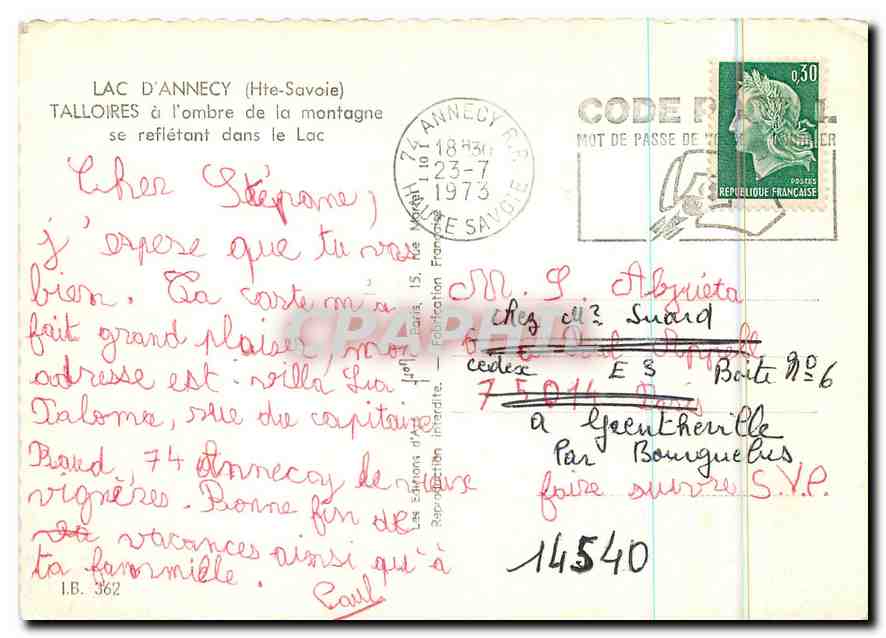 LAC D'ANNECY (Hte-Savoie)
TALLOIRES à l'ombre de la montagne
se reflétant dans le Lac
74 ANNECY R.P.
18H30
23-7
1973
HAUTE SAVOIE
CODE P
MOT DE PASSE DE
0,30
POSTES
REPUBLIQUE FRANÇAISE
Cher Stépane,
j'espese que tu vas
bien. Ta carte m'a
fait grand plaiser, mon
adresse est: villa
Paloma, rue du capitaine
Baud, 74 Annecy le
vignères. Bonne fin de
vacances ainsi qu'à
ta fammille.
Paul
I.B. 362
Les Editions d'Art
Paris, 15, rue Martel
Reproduction interdite. — Fabrication Française
CPAPHT
M. S. Abjuéta
chez Mr Suard
75014 Paris
cedex E 3 Boite No 6
à Grentheville
Par Bourguebus
faire suivre S.V.P.
14540